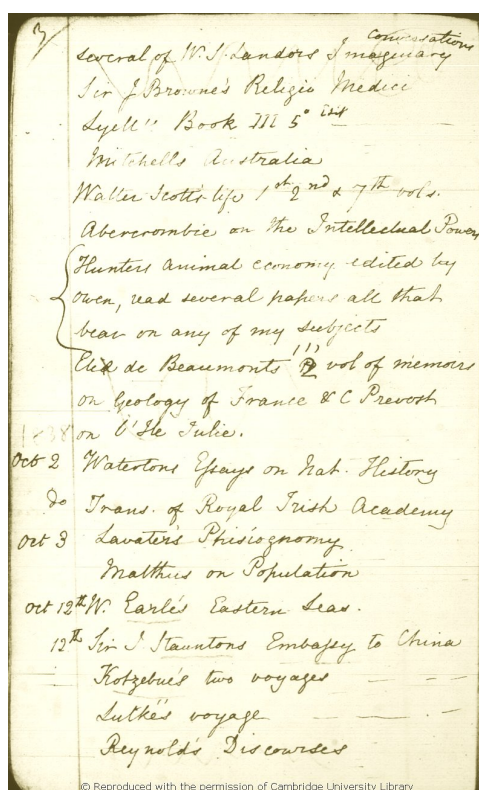 3
Conversations
several of W. S. Landors Imaginary
Sir J Browne's Religio Medici
Lyell's Book III 5° Edit
Mitchells Australia
Walter Scotts life 1st 2nd & 7th vols.
Abercrombie on the Intellectual Powers
Hunters animal economy edited by
Owen, read several papers all that
bear on any of my subjects
Elie de Beaumonts vol of memoirs
on Geology of France & C Prevost
1838 on l'Ile Julie.
Oct 2 Watertons Essays on Nat. History
do Trans. of Royal Irish Academy
Oct 3 Lavater's Phisiognomy
Malthus on Population
Oct 12th W. Earle's Eastern Seas.
12th Sir J Stauntons Embassy to China
Kotzebue's two voyages
Lutké's voyage
Reynold's Discourses
© Reproduced with the permission of Cambridge University Library